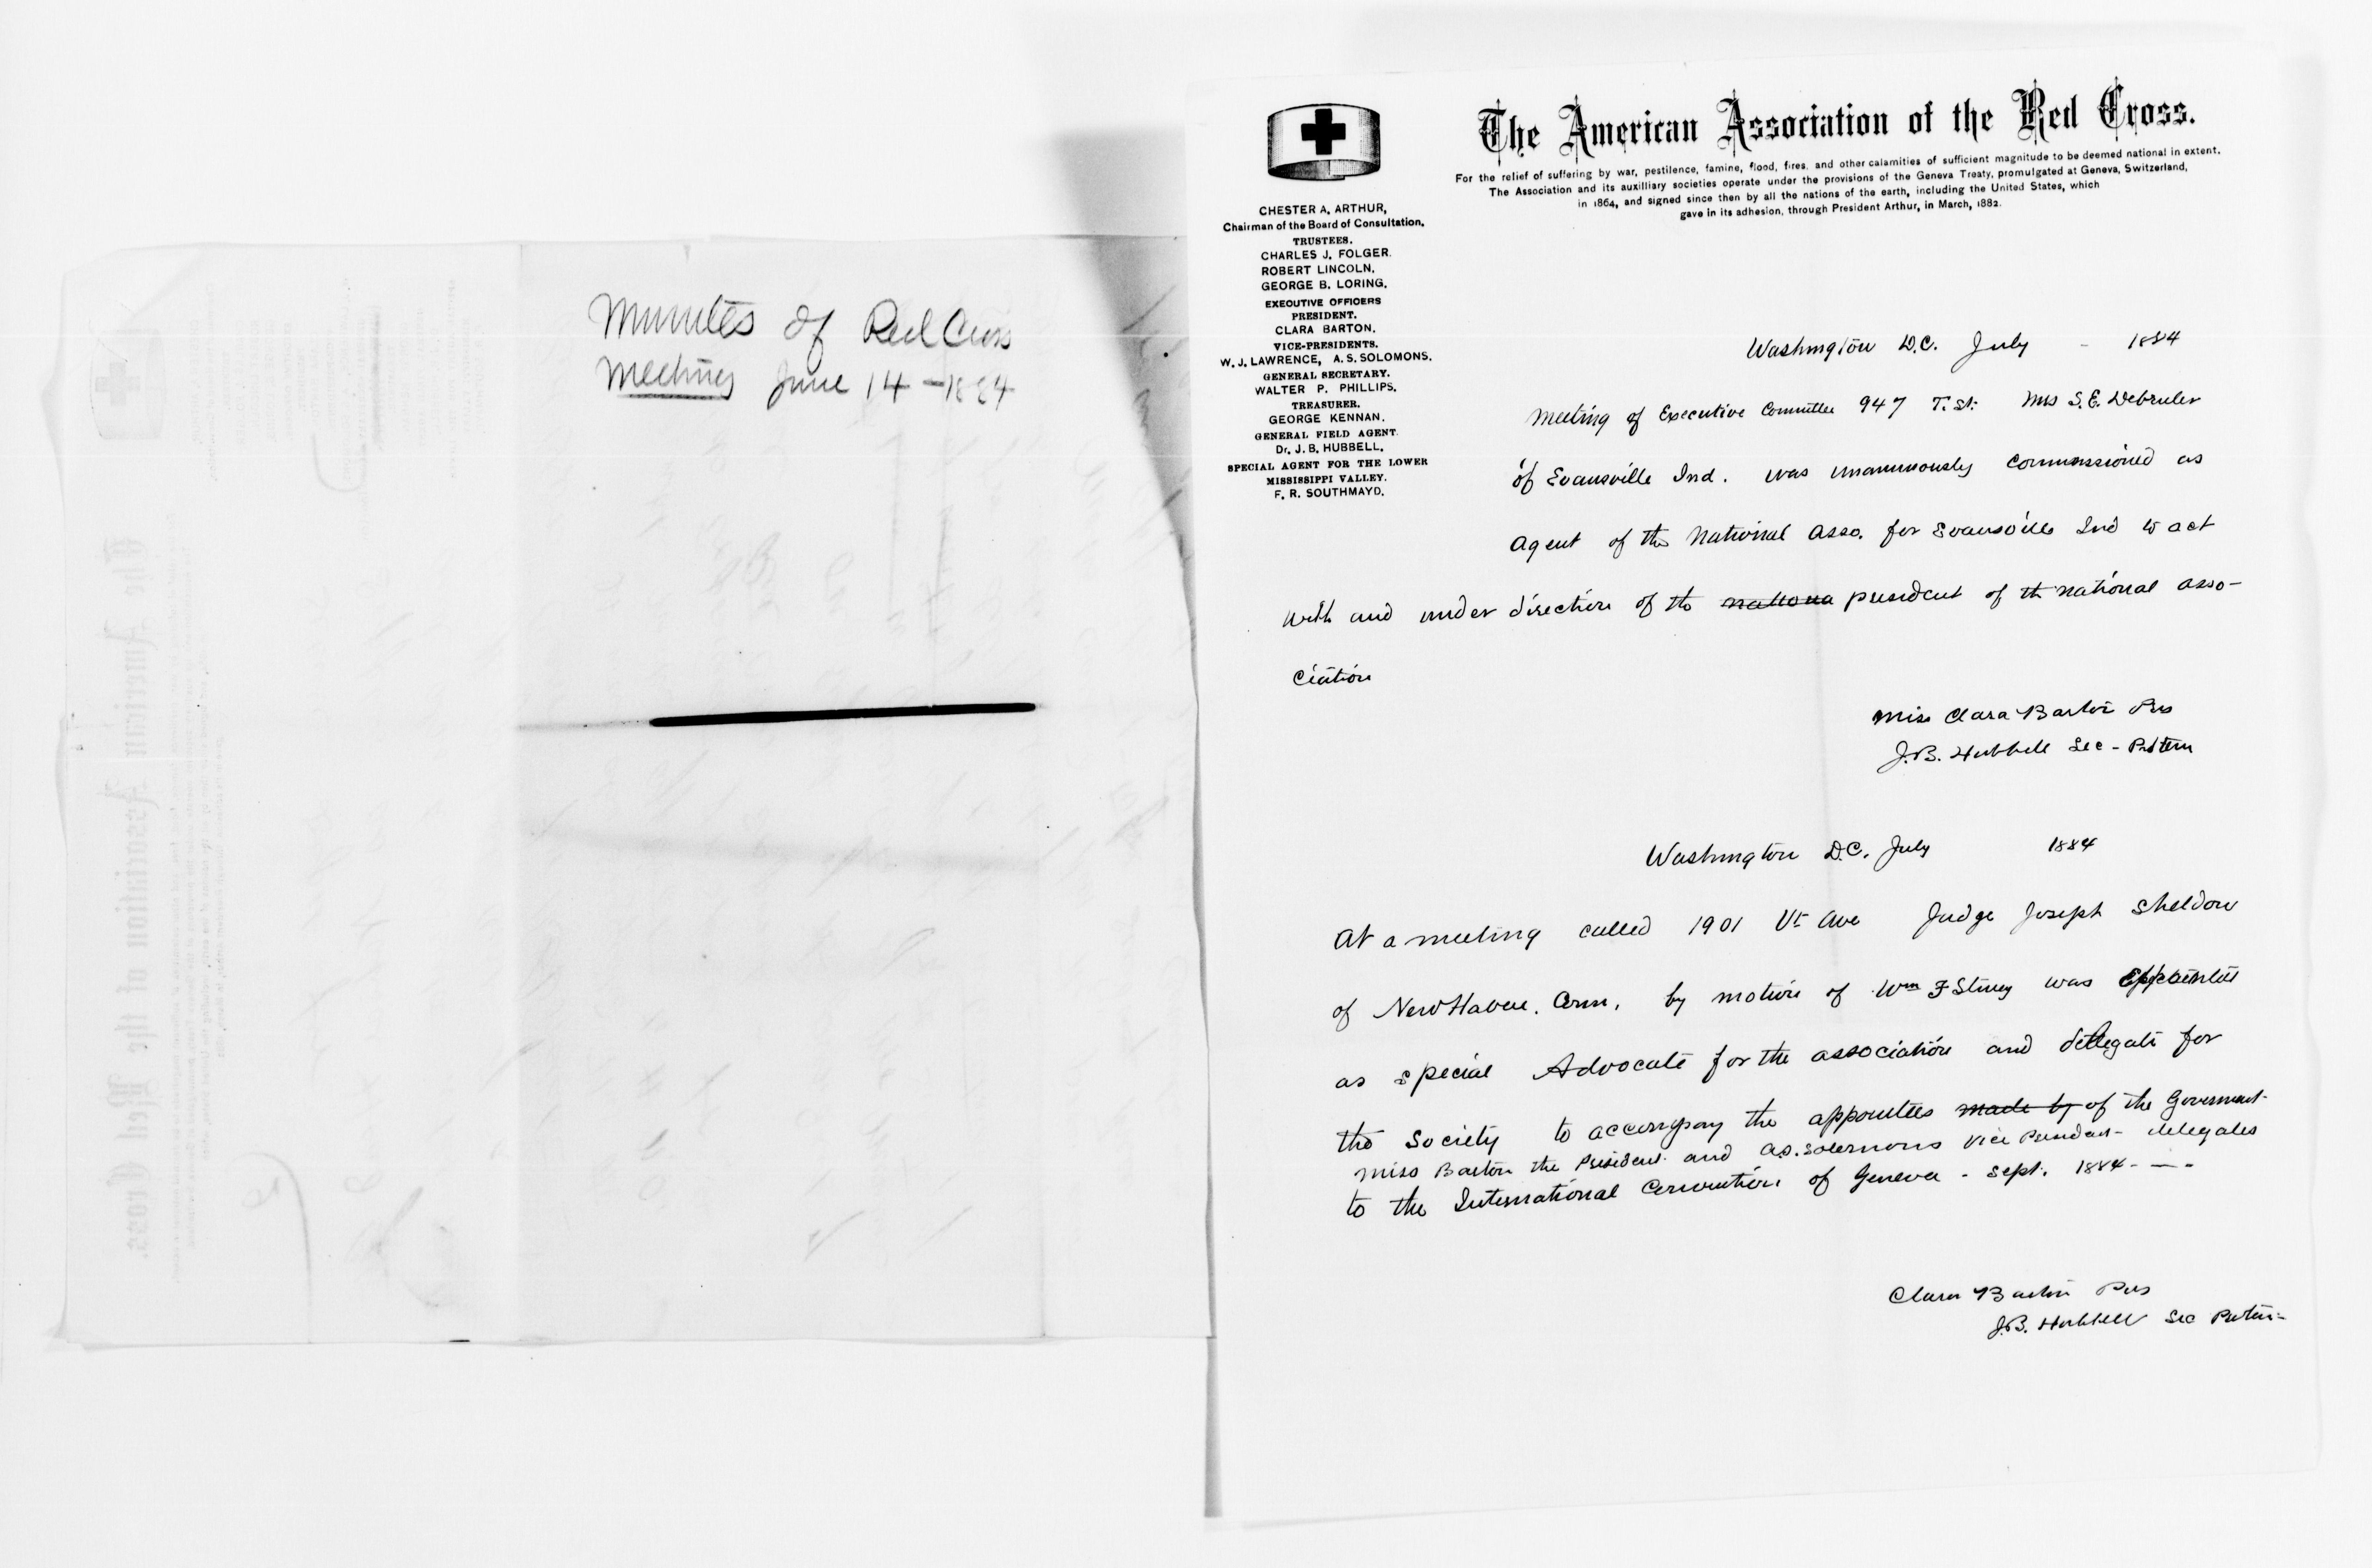 Minutes of Red Cross
Meetings June 14 - 1884
The American Association of the Red Cross.
For the relief of suffering by war, pestilence, famine, flood, fires, and other calamities of sufficient magnitude to be deemed national in extent.
The Association and its auxilliary societies operate under the provisions of the Geneva Treaty, promulgated at Geneva, Switzerland,
in 1864, and signed since then by all the nations of the earth, including the United States, which
gave in its adhesion, through President Arthur, in March, 1882.
CHESTER A. ARTHUR,
Chairman of the Board of Consultation.
TRUSTEES.
CHARLES J. FOLGER.
ROBERT LINCOLN.
GEORGE B. LORING.
EXECUTIVE OFFICERS
PRESIDENT.
CLARA BARTON.
VICE-PRESIDENTS.
W. J. LAWRENCE, A. S. SOLOMONS.
GENERAL SECRETARY.
WALTER P. PHILLIPS.
TREASURER.
GEORGE KENNAN.
GENERAL FIELD AGENT.
Dr. J. B. HUBBELL.
SPECIAL AGENT FOR THE LOWER
MISSISSIPPI VALLEY.
F. R. SOUTHMAYD.
Washington D.C. July - 1884
Meeting of Executive Committee 947 T. St. Mrs S. E. Debruler
of Evansville Ind. was unanimously commissioned as
Agent of the National Asso. for Evansville Ind to act
with and under direction of the nationa president of the national asso-
ciation
Miss Clara Barton Pres
J.B. Hubbell Sec - Protem
Washington D.C. July 1884
At a meeting called 1901 Vt Ave Judge Joseph Sheldon
of New Haven. Conn. by motion of Wm F Sliney was appointed
as special Advocate for the association and delegate for
the Society to accompany the appointees made by of the Government
Miss Barton the President and A.S. Solomons Vice President - delegates
to the International Convention of Geneva - Sept. 1884 - - -
Clara Barton Pres
J.B. Hubbell Sec Protem -